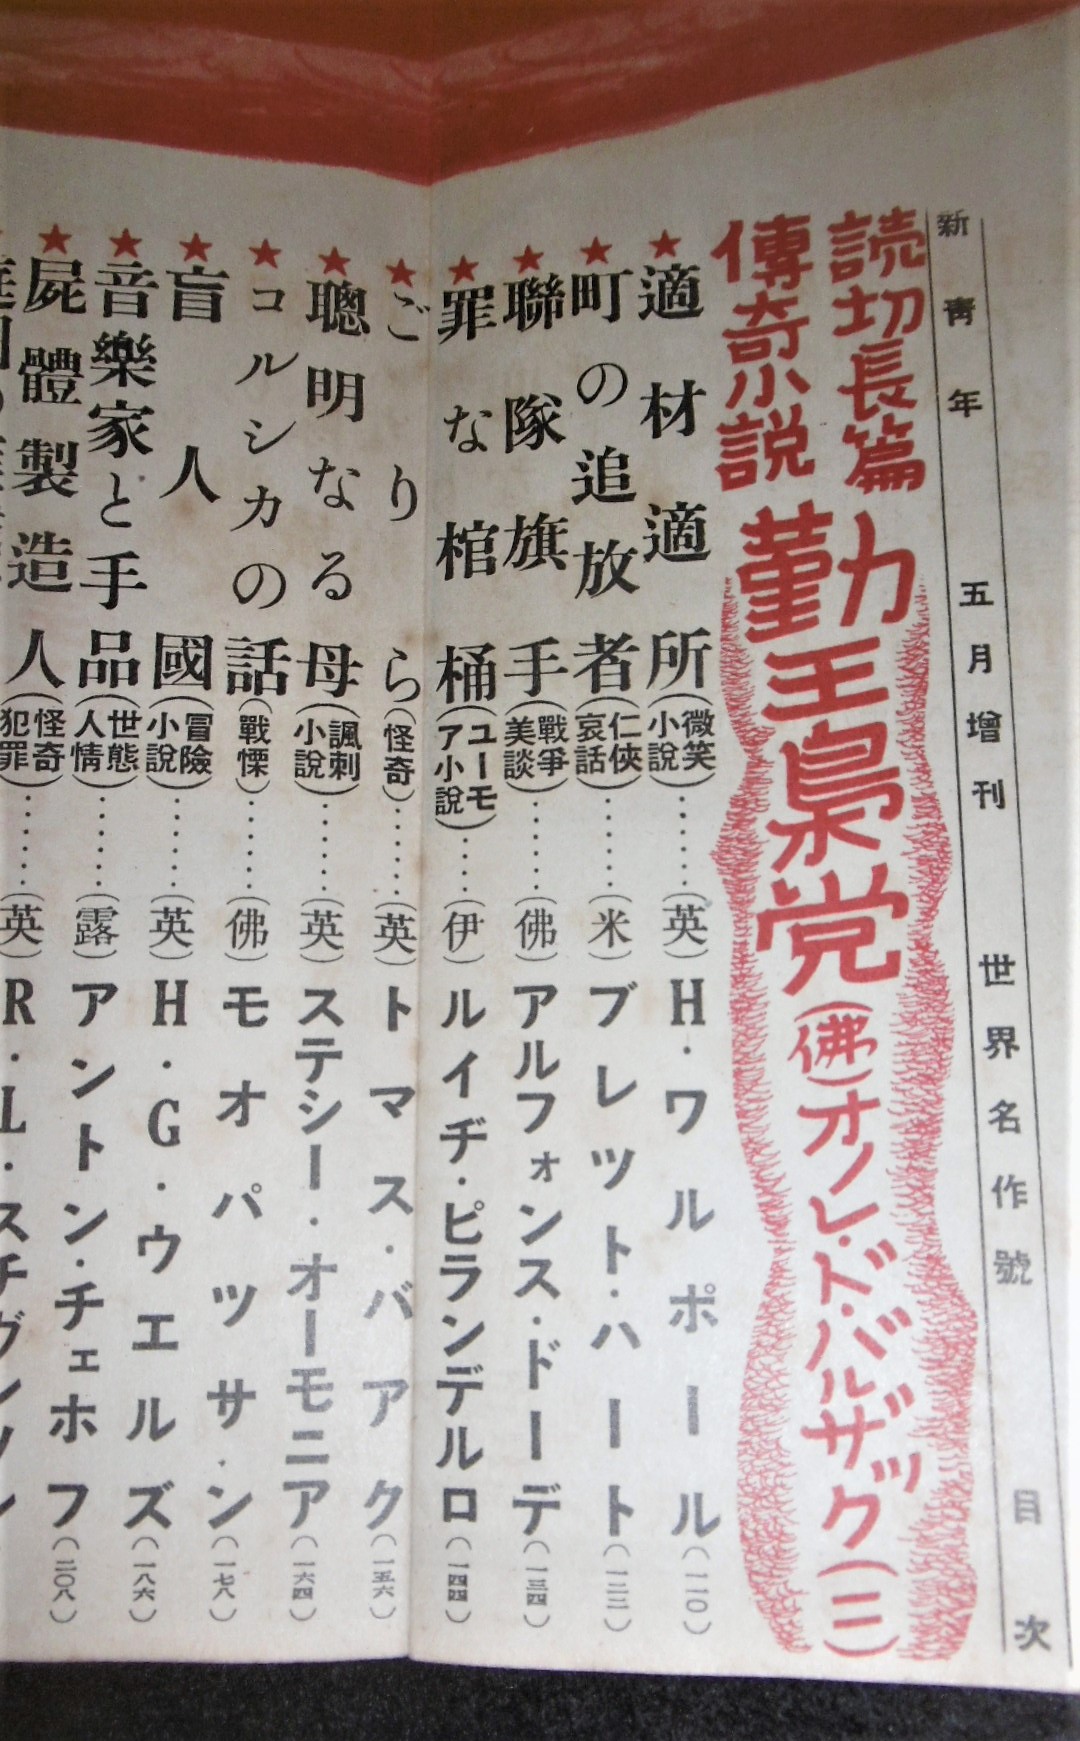 新靑年 五月增刊 世界名作號 目次
読切長篇
傳奇小説
勤王梟党(佛)オノレ・ド・バルザック(二)
★適材適所(微笑小說)……(英)H・ワルポール(一一〇)
★町の追放者(仁俠哀話)……(米)ブレツト・ハート(一二二)
★聯隊旗手(戰爭美談)……(佛)アルフォンス・ドーデ(一三四)
★罪な棺桶(ユーモア小說)……(伊)ルイヂ・ピランデルロ(一四四)
★ごりら(怪奇)……(英)トマス・バアク(一五六)
★聰明なる母(諷刺小說)……(英)ステシー・オーモニア(一六四)
★コルシカの話(戰慄)……(佛)モオパツサ・ン(一七八)
★盲人國(冒險小說)……(英)H・G・ウエルズ(一八六)
★音樂家と手品(世態人情)……(露)アントン・チェホフ(二〇八)
★屍體製造人(怪奇犯罪)……(英)R・L・スチヴンソン